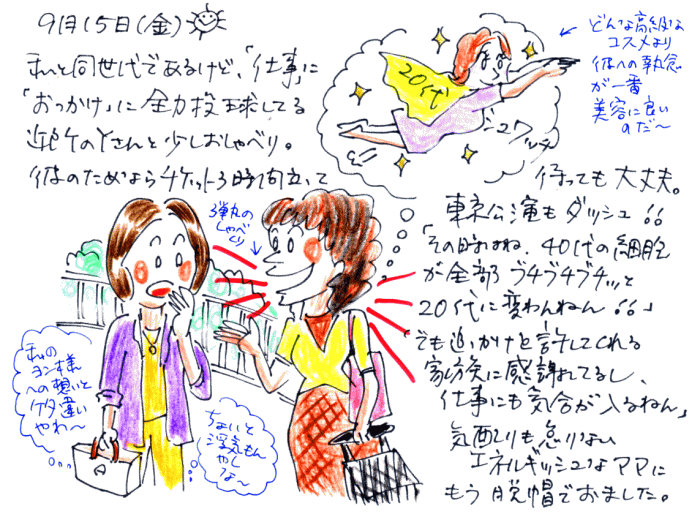 9月15日(金)
私と同世代であるけど、「仕事」に
「おっかけ」に全力投球してる
近所のYさんと少しおしゃべり。
彼のためならチケット3時間立って
待っても大丈夫。
東京公演もダッシュ!!
「その時はね、40代の細胞
が全部ブチブチブチッと
20代に変わんねん!!」
でも追いかけを許してくれる
家族に感謝してるし、
仕事にも気合が入るねん」
気配りも怠りない
エネルギッシュなママに
もう脱帽でおました。
20代
シュワッチ
どんな高級な
コスメより
彼への執念
が一番
美容に良い
のだ〜
弾丸の
しゃべ
くり
私の
ヨン様
への想いと
ケタ違い
やわ〜
ちょいと
浮気もん
やし
な〜